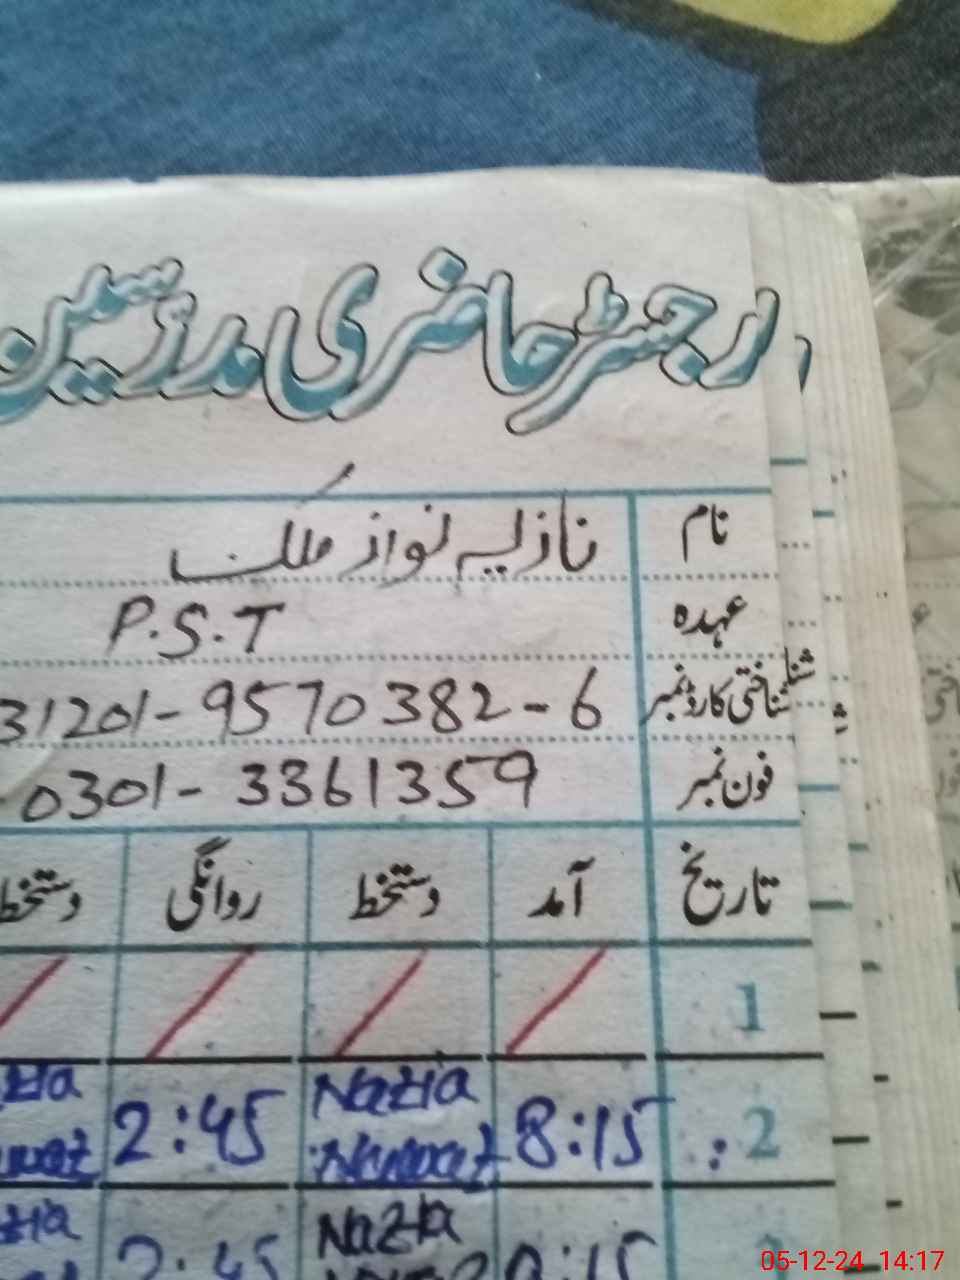 رجسٹر حاضری مدرسین
نام نازیہ نواز ملک
عہدہ P.S.T
شناختی کارڈ نمبر 31201-9570382-6
فون نمبر 0301-3361359
تاریخ آمد دستخط روانگی دستخط
1
2 8:15 Nazia Nawaz 2:45
Nazia
05-12-24 14:17